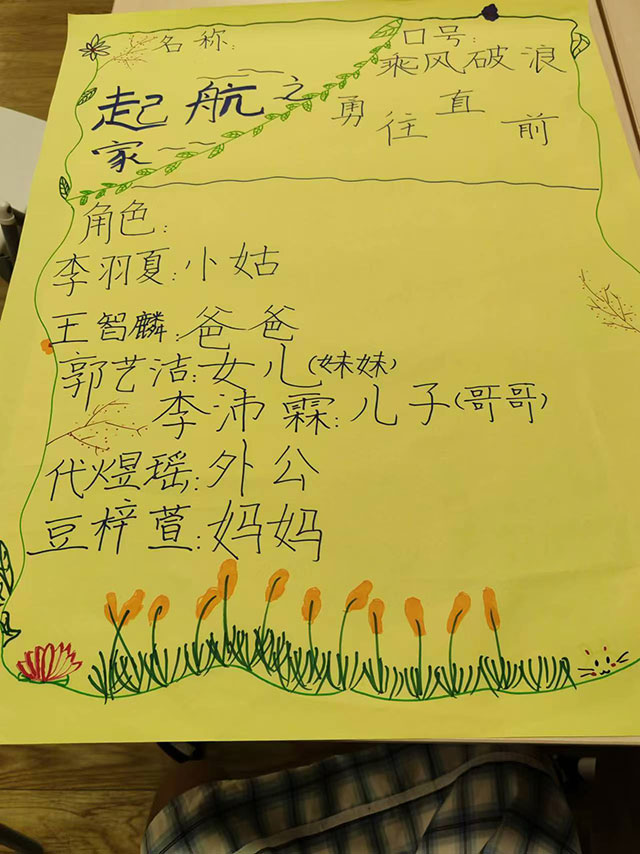 名称:
起航之
家
口号:
乘风破浪
勇往直前
角色:
李羽夏:小姑
王智麟:爸爸
郭艺洁:女儿(妹妹)
李沛霖:儿子(哥哥)
代煜瑶:外公
豆梓萱:妈妈